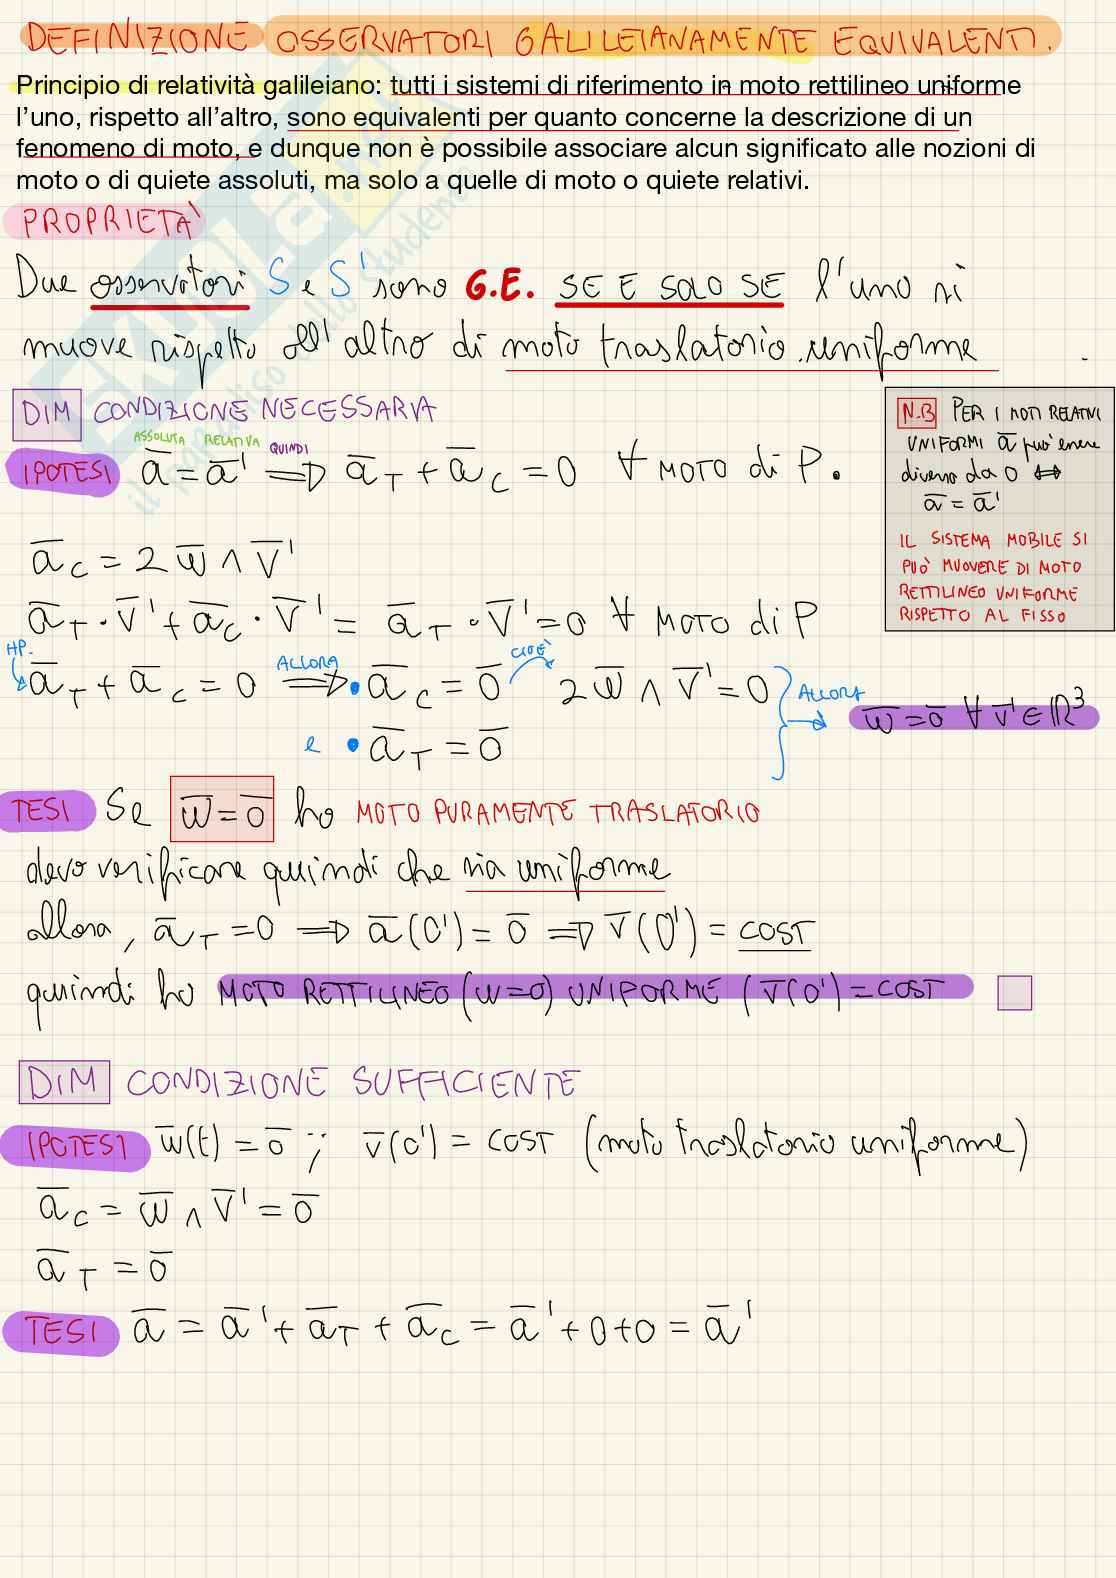 DEFINIZIONE OSSERVATORI GALILEIANAMENTE EQUIVALENTI.
Principio di relatività galileiano: tutti i sistemi di riferimento in moto rettilineo uniforme
l'uno, rispetto all'altro, sono equivalenti per quanto concerne la descrizione di un
fenomeno di moto, e dunque non è possibile associare alcun significato alle nozioni di
moto o di quiete assoluti, ma solo a quelle di moto o quiete relativi.
PROPRIETA'
Due osservatori S e S' sono G.E. SE E SOLO SE l'uno si
muove rispetto all'altro di moto traslatorio uniforme
DIM CONDIZIONE NECESSARIA
ASSOLUTA RELATIVA QUINDI
IPOTESI a̅ = a̅' ⟹ a̅_T + a̅_C = 0 ∀ MOTO di P.
N.B PER I MOTI RELATIVI
UNIFORMI a̅ può essere
diverso da 0 ⟺
a̅ = a̅'
IL SISTEMA MOBILE SI
PUÒ MUOVERE DI MOTO
RETTILINEO UNIFORME
RISPETTO AL FISSO
a̅_C = 2 w̅ ∧ v̅'
a̅_T · v̅' + a̅_C · v̅' = a̅_T · v̅' = 0 ∀ MOTO di P
HP. a̅_T + a̅_C = 0 ALLORA ⟹ • a̅_C = 0̅ CIOÈ 2 w̅ ∧ v̅' = 0
e • a̅_T = 0̅
ALLORA → w̅ = 0̅ ∀ v̅' ∈ ℝ³
TESI Se w̅ = 0̅ ho MOTO PURAMENTE TRASLATORIO
devo verificare quindi che sia uniforme
allora, a̅_T = 0 ⟹ a̅(O') = 0̅ ⟹ v̅(O') = COST
quindi ho MOTO RETTILINEO (w=0) UNIFORME (v̅(O') = COST
DIM CONDIZIONE SUFFICIENTE
IPOTESI w̅(t) = 0̅ ; v̅(O') = COST (moto traslatorio uniforme)
a̅_C = w̅ ∧ v̅' = 0̅
a̅_T = 0̅
TESI a̅ = a̅' + a̅_T + a̅_C = a̅' + 0 + 0 = a̅'
SKUOLA.net
il paradiso dello studente